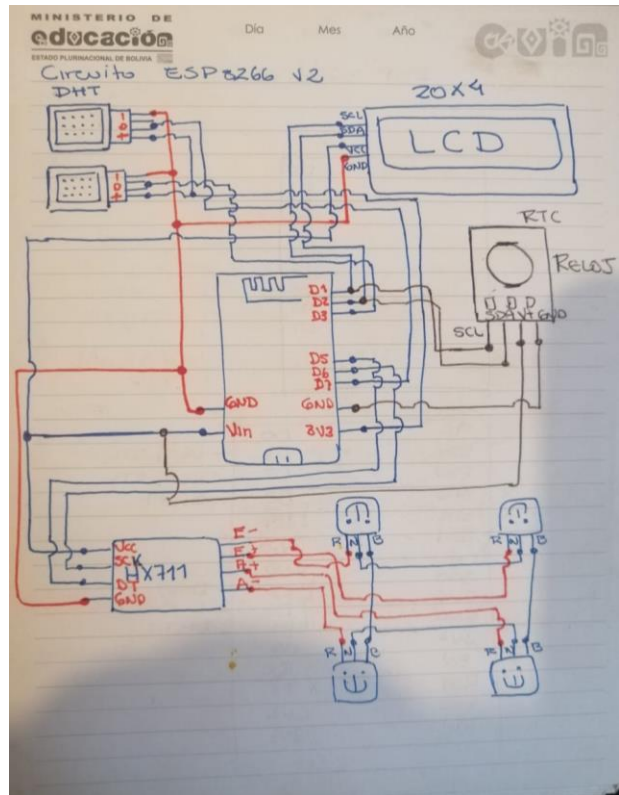 MINISTERIO DE
educación
ESTADO PLURINACIONAL DE BOLIVIA
Dia Mes Año
Circuito ESP8266 V2
DHT
20X4
SCL
SDA
VCC
GND
LCD
- o +
- o +
RTC
RELOJ
SDA V+ GND
SCL
D1
D2
D3
D5
D6
D7
GND
GND
Vin
3V3
VCC
SCK
HX711
DT
GND
E-
E+
A+
A-
R N B
R N B
R N B
R N B